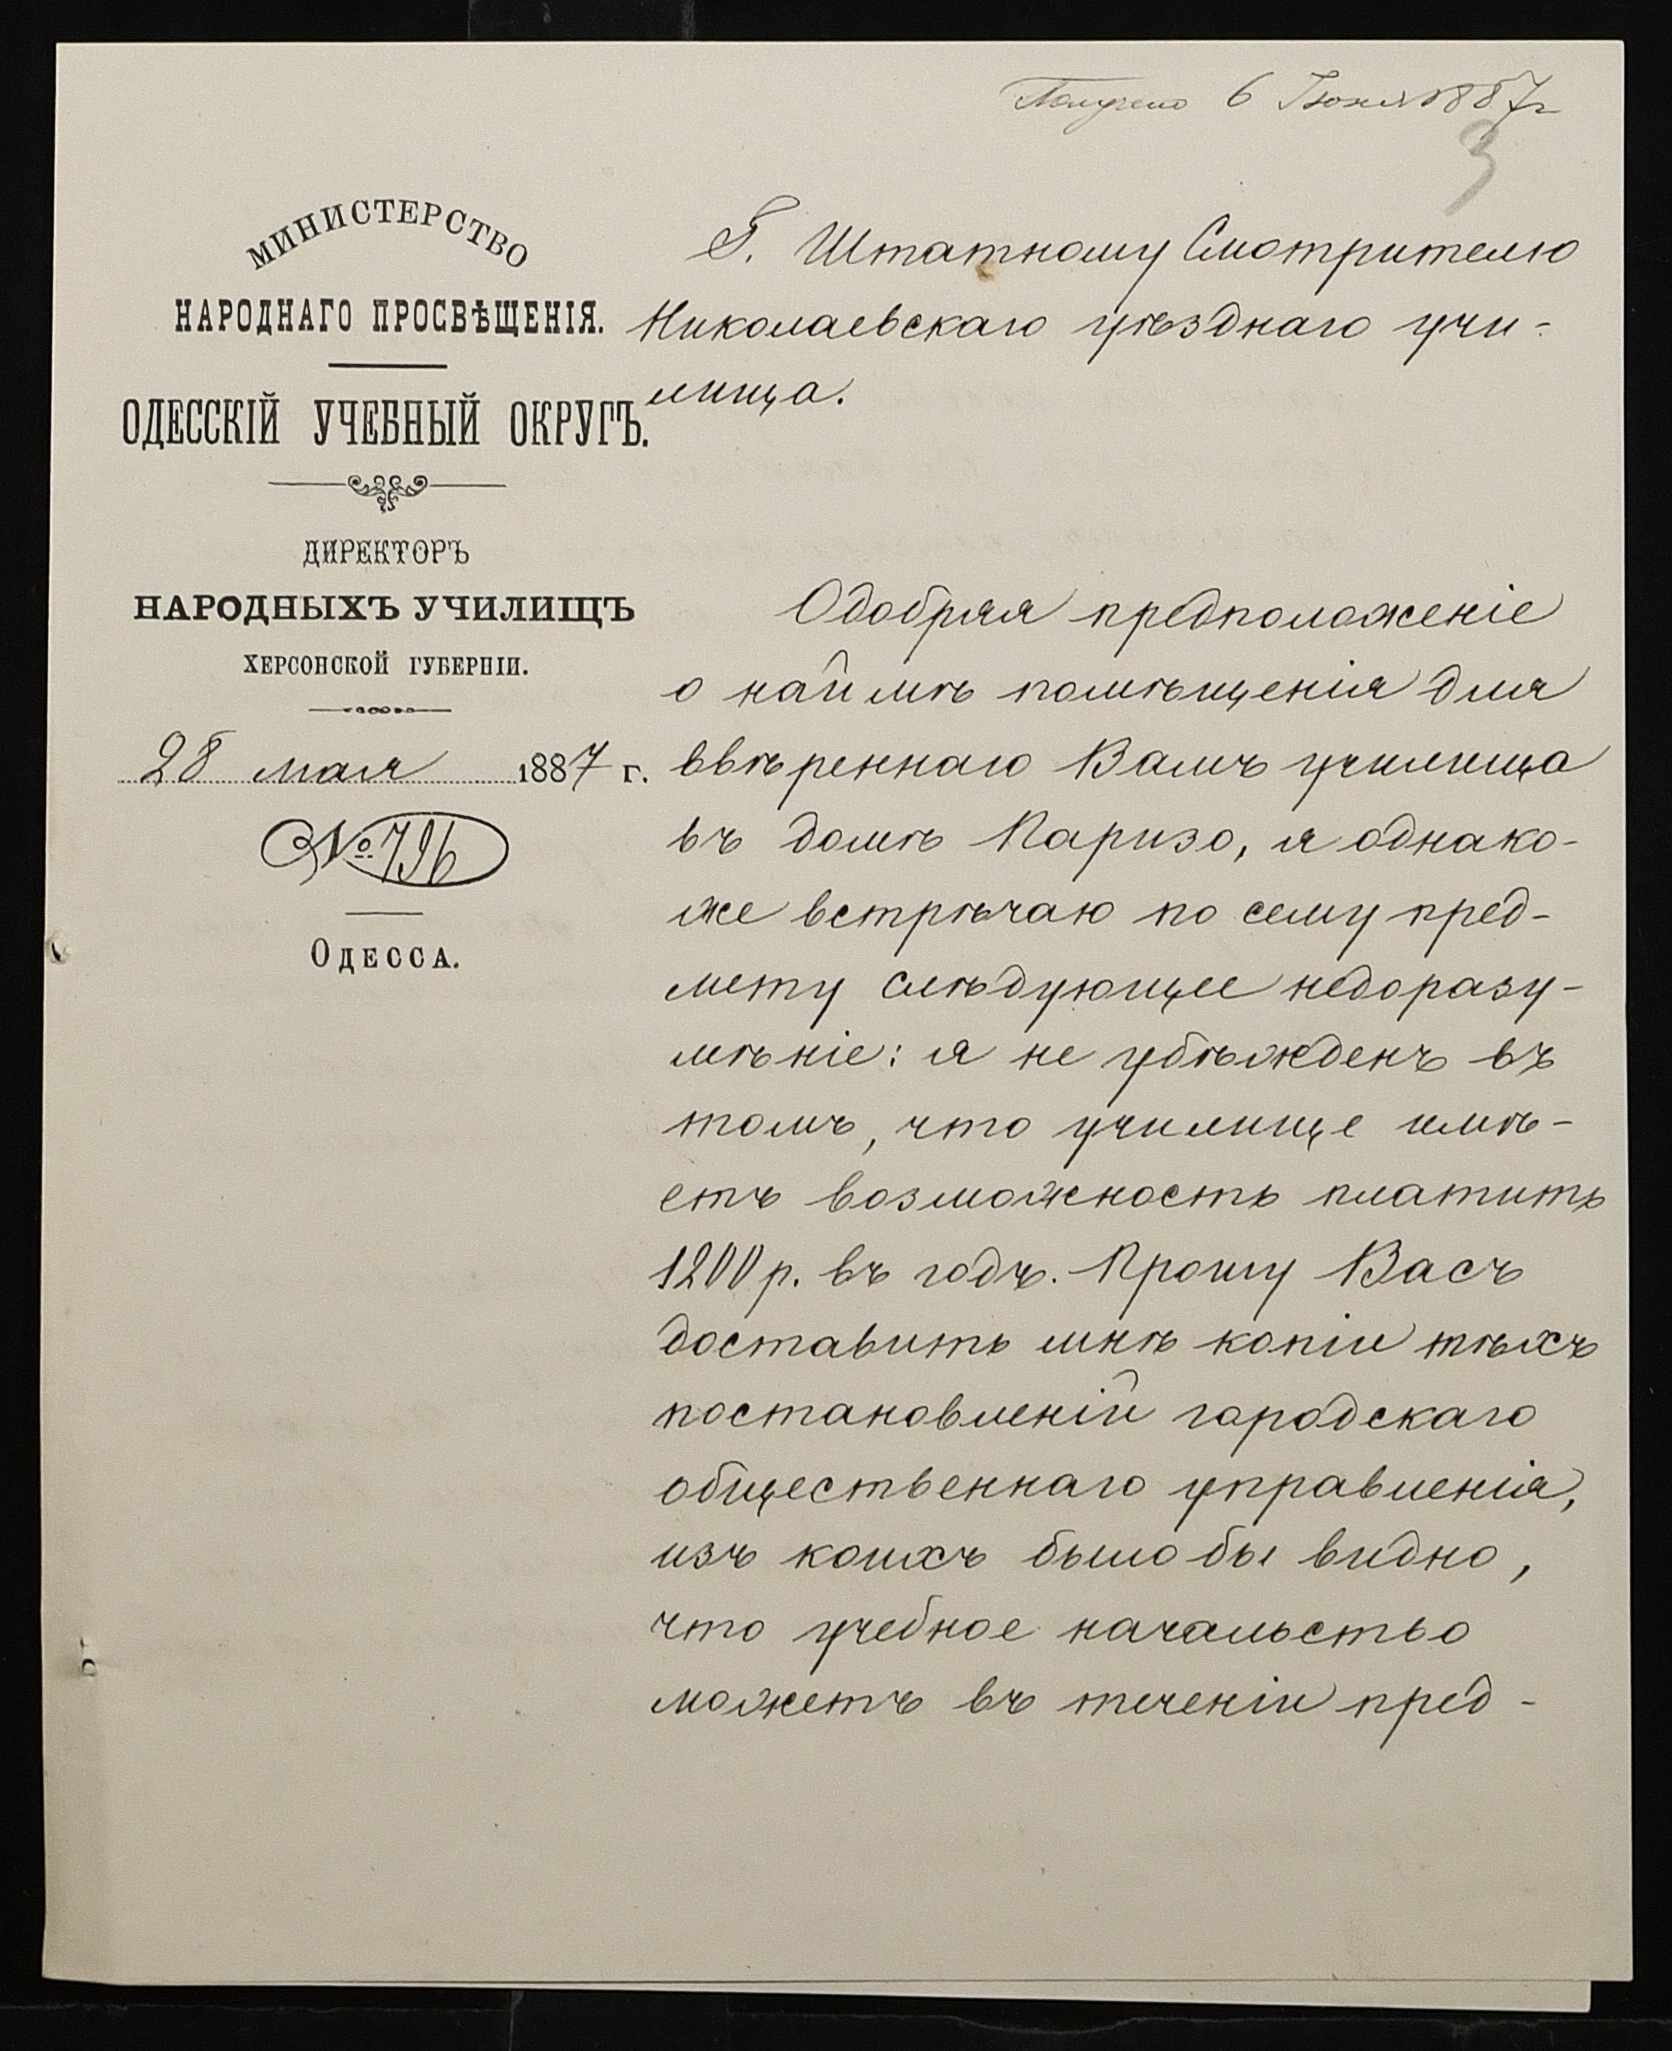 Получено 6 Іюня 1887 г
3
МИНИСТЕРСТВО
НАРОДНАГО ПРОСВѢЩЕНІЯ.
ОДЕССКІЙ УЧЕБНЫЙ ОКРУГЪ.
ДИРЕКТОРЪ
НАРОДНЫХЪ УЧИЛИЩЪ
ХЕРСОНСКОЙ ГУБЕРНІИ.
28 мая 1887 г.
№ 796
ОДЕССА.
Г. Штатному Смотрителю
Николаевскаго уѣзднаго учи-
лища.
Одобряя предположеніе
о наймѣ помѣщенія для
ввѣреннаго Вамъ училища
въ домѣ Паризо, я однако-
же встрѣчаю по сему пред-
мету слѣдующее недоразу-
мѣніе: я не убѣжденъ въ
томъ, что училище имѣ-
етъ возможность платить
1200 р. въ годъ. Прошу Васъ
доставить мнѣ копіи тѣхъ
постановленій городскаго
общественнаго управленія,
изъ коихъ было бы видно,
что учебное начальство
можетъ въ теченіи пред-